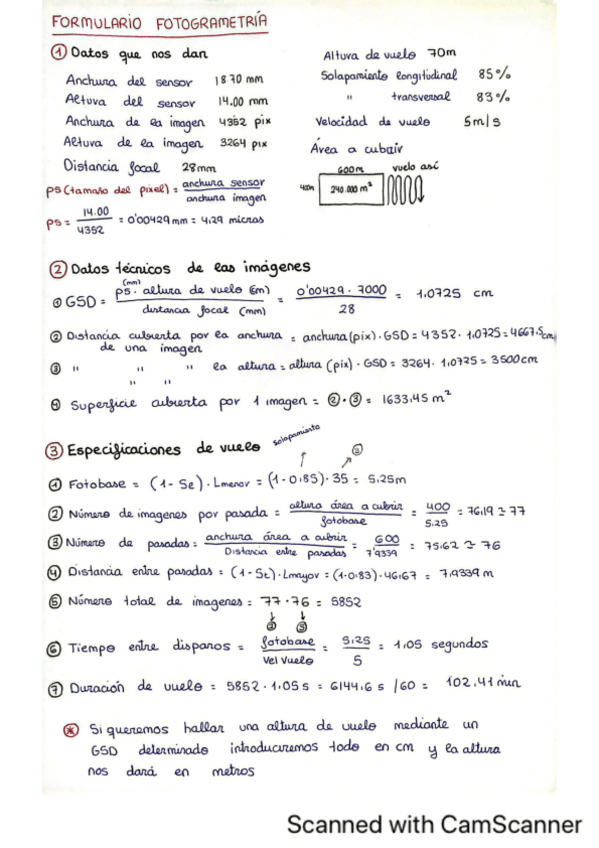 FORMULARIO FOTOGRAMETRÍA
① Datos que nos dan
Anchura del sensor 18.70 mm
Altura del sensor 14.00 mm
Anchura de la imagen 4352 pix
Altura de la imagen 3264 pix
Distancia focal 28mm
ps (tamaño del pixel) = anchura sensor / anchura imagen
ps = 14.00 / 4352 = 0'00429 mm = 4.29 micras
Altura de vuelo 70m
Solapamiento longitudinal 85%
" transversal 83%
Velocidad de vuelo 5m/s
Área a cubrir
600m vuelo así
400m 240.000 m²
② Datos técnicos de las imágenes
① GSD = ps(mm) · altura de vuelo (cm) / distancia focal (mm) = 0'00429 · 7000 / 28 = 1.0725 cm
② Distancia cubierta por la anchura = anchura (pix) · GSD = 4352 · 1.0725 = 4667.5cm
de una imagen
③ " " " la altura = altura (pix) · GSD = 3264 · 1.0725 = 3500cm
" "
④ Superficie cubierta por 1 imagen = ② · ③ = 1633.45 m²
③ Especificaciones de vuelo
solapamiento ③
① Fotobase = (1 - Se) · Lmenor = (1 - 0.85) · 35 = 5.25m
② Número de imagenes por pasada = altura área a cubrir / fotobase = 400 / 5.25 = 76.19 ≃ 77
③ Número de pasadas = anchura área a cubrir / Distancia entre pasadas = 600 / 7'9339 = 75.62 ≃ 76
④ Distancia entre pasadas = (1 - St) · Lmayor = (1-0.83) · 46.67 = 7.9339 m
⑤ Número total de imagenes = 77 · 76 = 5852
② ③
⑥ Tiempo entre disparos = fotobase / Vel Vuelo = 5.25 / 5 = 1.05 segundos
⑦ Duración de vuelo = 5852 · 1.05 s = 6144.6 s /60 = 102.41 min
* Si queremos hallar una altura de vuelo mediante un
GSD determinado introduciremos todo en cm y la altura
nos dará en metros
Scanned with CamScanner